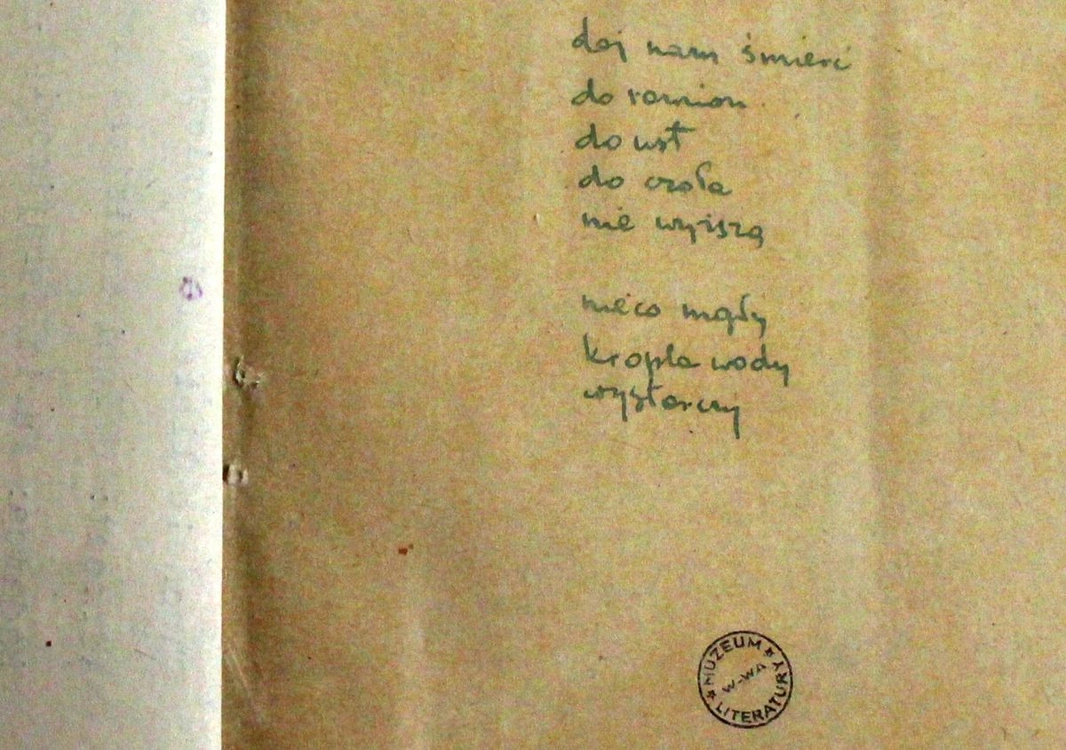 daj nam śmierć
do ramion
do ust
do czoła
nie wyższą

nieco mgły
kropla wody
wystarczy
MUZEUM
LITERATURY
W-WA